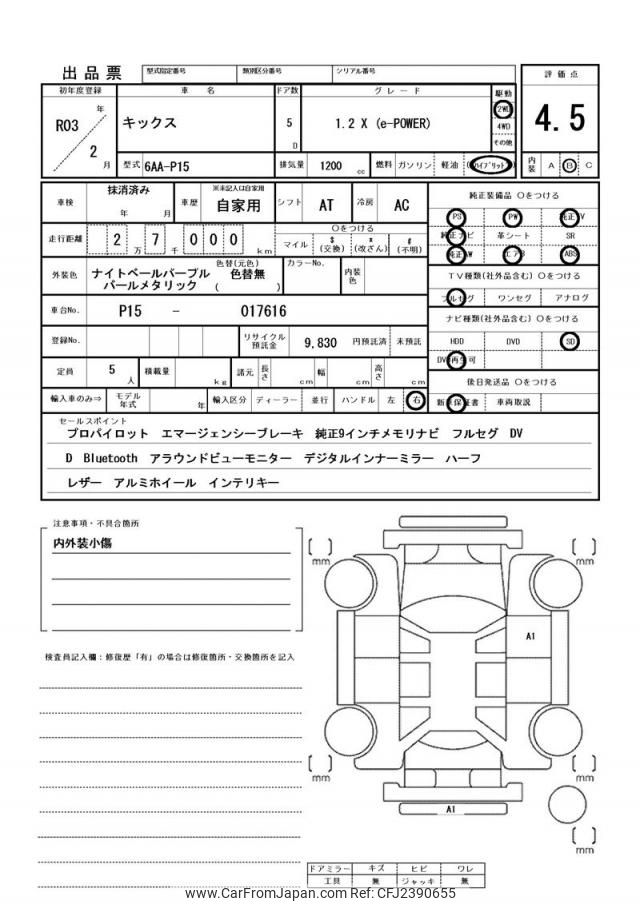 出品票
型式指定番号 類別区分番号 シリアル番号
評価点
4.5
内装 A B C
初年度登録 車名 ドア数 グレード 駆動
R03 年 2 月
キックス 5 D 1.2 X (e-POWER)
2WD
4WD
その他
型式 6AA-P15 排気量 1200 cc 燃料 ガソリン 軽油 (ハイブリッド)
車検 抹消済み 年 月 車歴 ※未記入は自家用 自家用 シフト AT 冷房 AC
走行距離 2 万 7 千 0 0 0 km
○をつける
マイル $(交換) *(改ざん) #(不明)
外装色 ナイトベールパープル パールメタリック 色替(元色) 色替無 ( ) カラーNo. 内装色
車台No. P15 - 017616
登録No. リサイクル預託金 9,830 円預託済 未預託
定員 5 人 積載量 kg 諸元 長さ cm 幅 cm 高さ cm
輸入車のみ⇒ モデル年式 年 輸入区分 ディーラー 並行 ハンドル 左 右
純正装備品 ○をつける
PS PW 純正TV
純正ナビ 革シート SR
純正AW エアB ABS
TV種類(社外品含む) ○をつける
フルセグ ワンセグ アナログ
ナビ種類(社外品含む) ○をつける
HDD DVD SD
DVD再生可
後日発送品 ○をつける
新車保証書 車両取説
セールスポイント
プロパイロット エマージェンシーブレーキ 純正9インチメモリナビ フルセグ DV
D Bluetooth アラウンドビューモニター デジタルインナーミラー ハーフ
レザー アルミホイール インテリキー
注意事項・不具合箇所
内外装小傷
検査員記入欄：修復歴「有」の場合は修復箇所・交換箇所を記入
[ ] mm
[ ] mm
A1
[ ] mm
[ ] mm
A1
[ ] mm
ドアミラー キズ ヒビ ワレ
工具 無 ジャッキ 無
www.CarFromJapan.com Ref: CFJ2390655